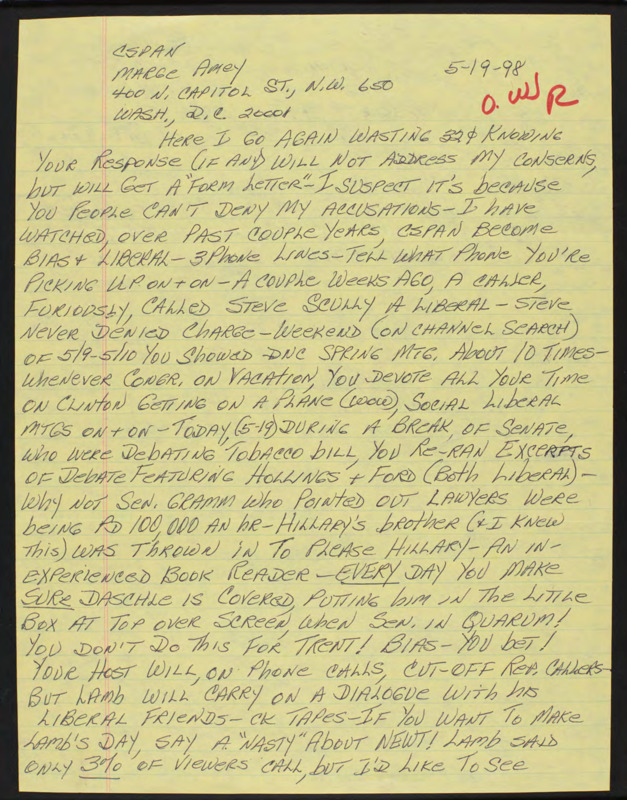 CSPAN
MARGE AMEY 5-19-98
400 N. CAPITOL ST., N.W. 650
WASH., D.C. 20001
HERE I GO AGAIN WASTING 32¢ KNOWING
YOUR RESPONSE (IF ANY) WILL NOT ADDRESS MY CONSERNS,
but WILL GET A "FORM LETTER" - I SUSPECT IT'S because
YOU PEOPLE CAN'T DENY MY ACCUSATIONS - I have
WATCHED, OVER PAST COUPLE YEARS, CSPAN BECOME
BIAS & LIBERAL - 3 Phone LINES - TELL WHAT PHONE YOU'RE
PICKING UP ON + ON - A COUPLE WEEKS AGO, A CALLER,
FURIOUSLY, CALLED STEVE SCULLY A LIBERAL - STEVE
NEVER DENIED CHARGE - WEEKEND (ON CHANNEL SEARCH)
OF 5/9-5/10 YOU SHOWED DNC SPRING MTG. ABOUT 10 TIMES -
WHENEVER CONGR. ON VACATION, YOU DEVOTE ALL YOUR TIME
ON CLINTON GETTING ON A PLANE (WOW), SOCIAL LIBERAL
MTGS ON + ON - TODAY, (5-19) DURING A BREAK, OF SENATE,
WHO WERE DEBATING TOBACCO BILL, YOU RE-RAN EXCERPTS
OF DEBATE FEATURING HOLLINGS & FORD (BOTH LIBERAL) -
WHY NOT SEN. GRAMM WHO POINTED OUT LAWYERS WERE
being PD 100,000 AN hR - HILLARY'S brother (& I KNEW
This) WAS THROWN IN TO PLEASE HILLARY - AN IN-
EXPERIENCED BOOK READER - EVERY DAY YOU MAKE
SURE DASCHLE IS COVERED, PUTTING him IN THE LITTLE
BOX AT TOP OVER SCREEN, WHEN SEN. IN QUARUM!
YOU DON'T DO THIS FOR TRENT! BIAS - YOU bET!
YOUR HOST WILL, ON PHONE CALLS, CUT-OFF REP. CALLERS -
BUT LAMB WILL CARRY ON A DIALOGUE WITH his
LIBERAL FRIENDS - CK TAPES - IF YOU WANT TO MAKE
LAMB'S DAY, SAY A "NASTY" ABOUT NEWT! LAMB SAID
ONLY 3% OF VIEWERS CALL, but I'D LIKE TO SEE